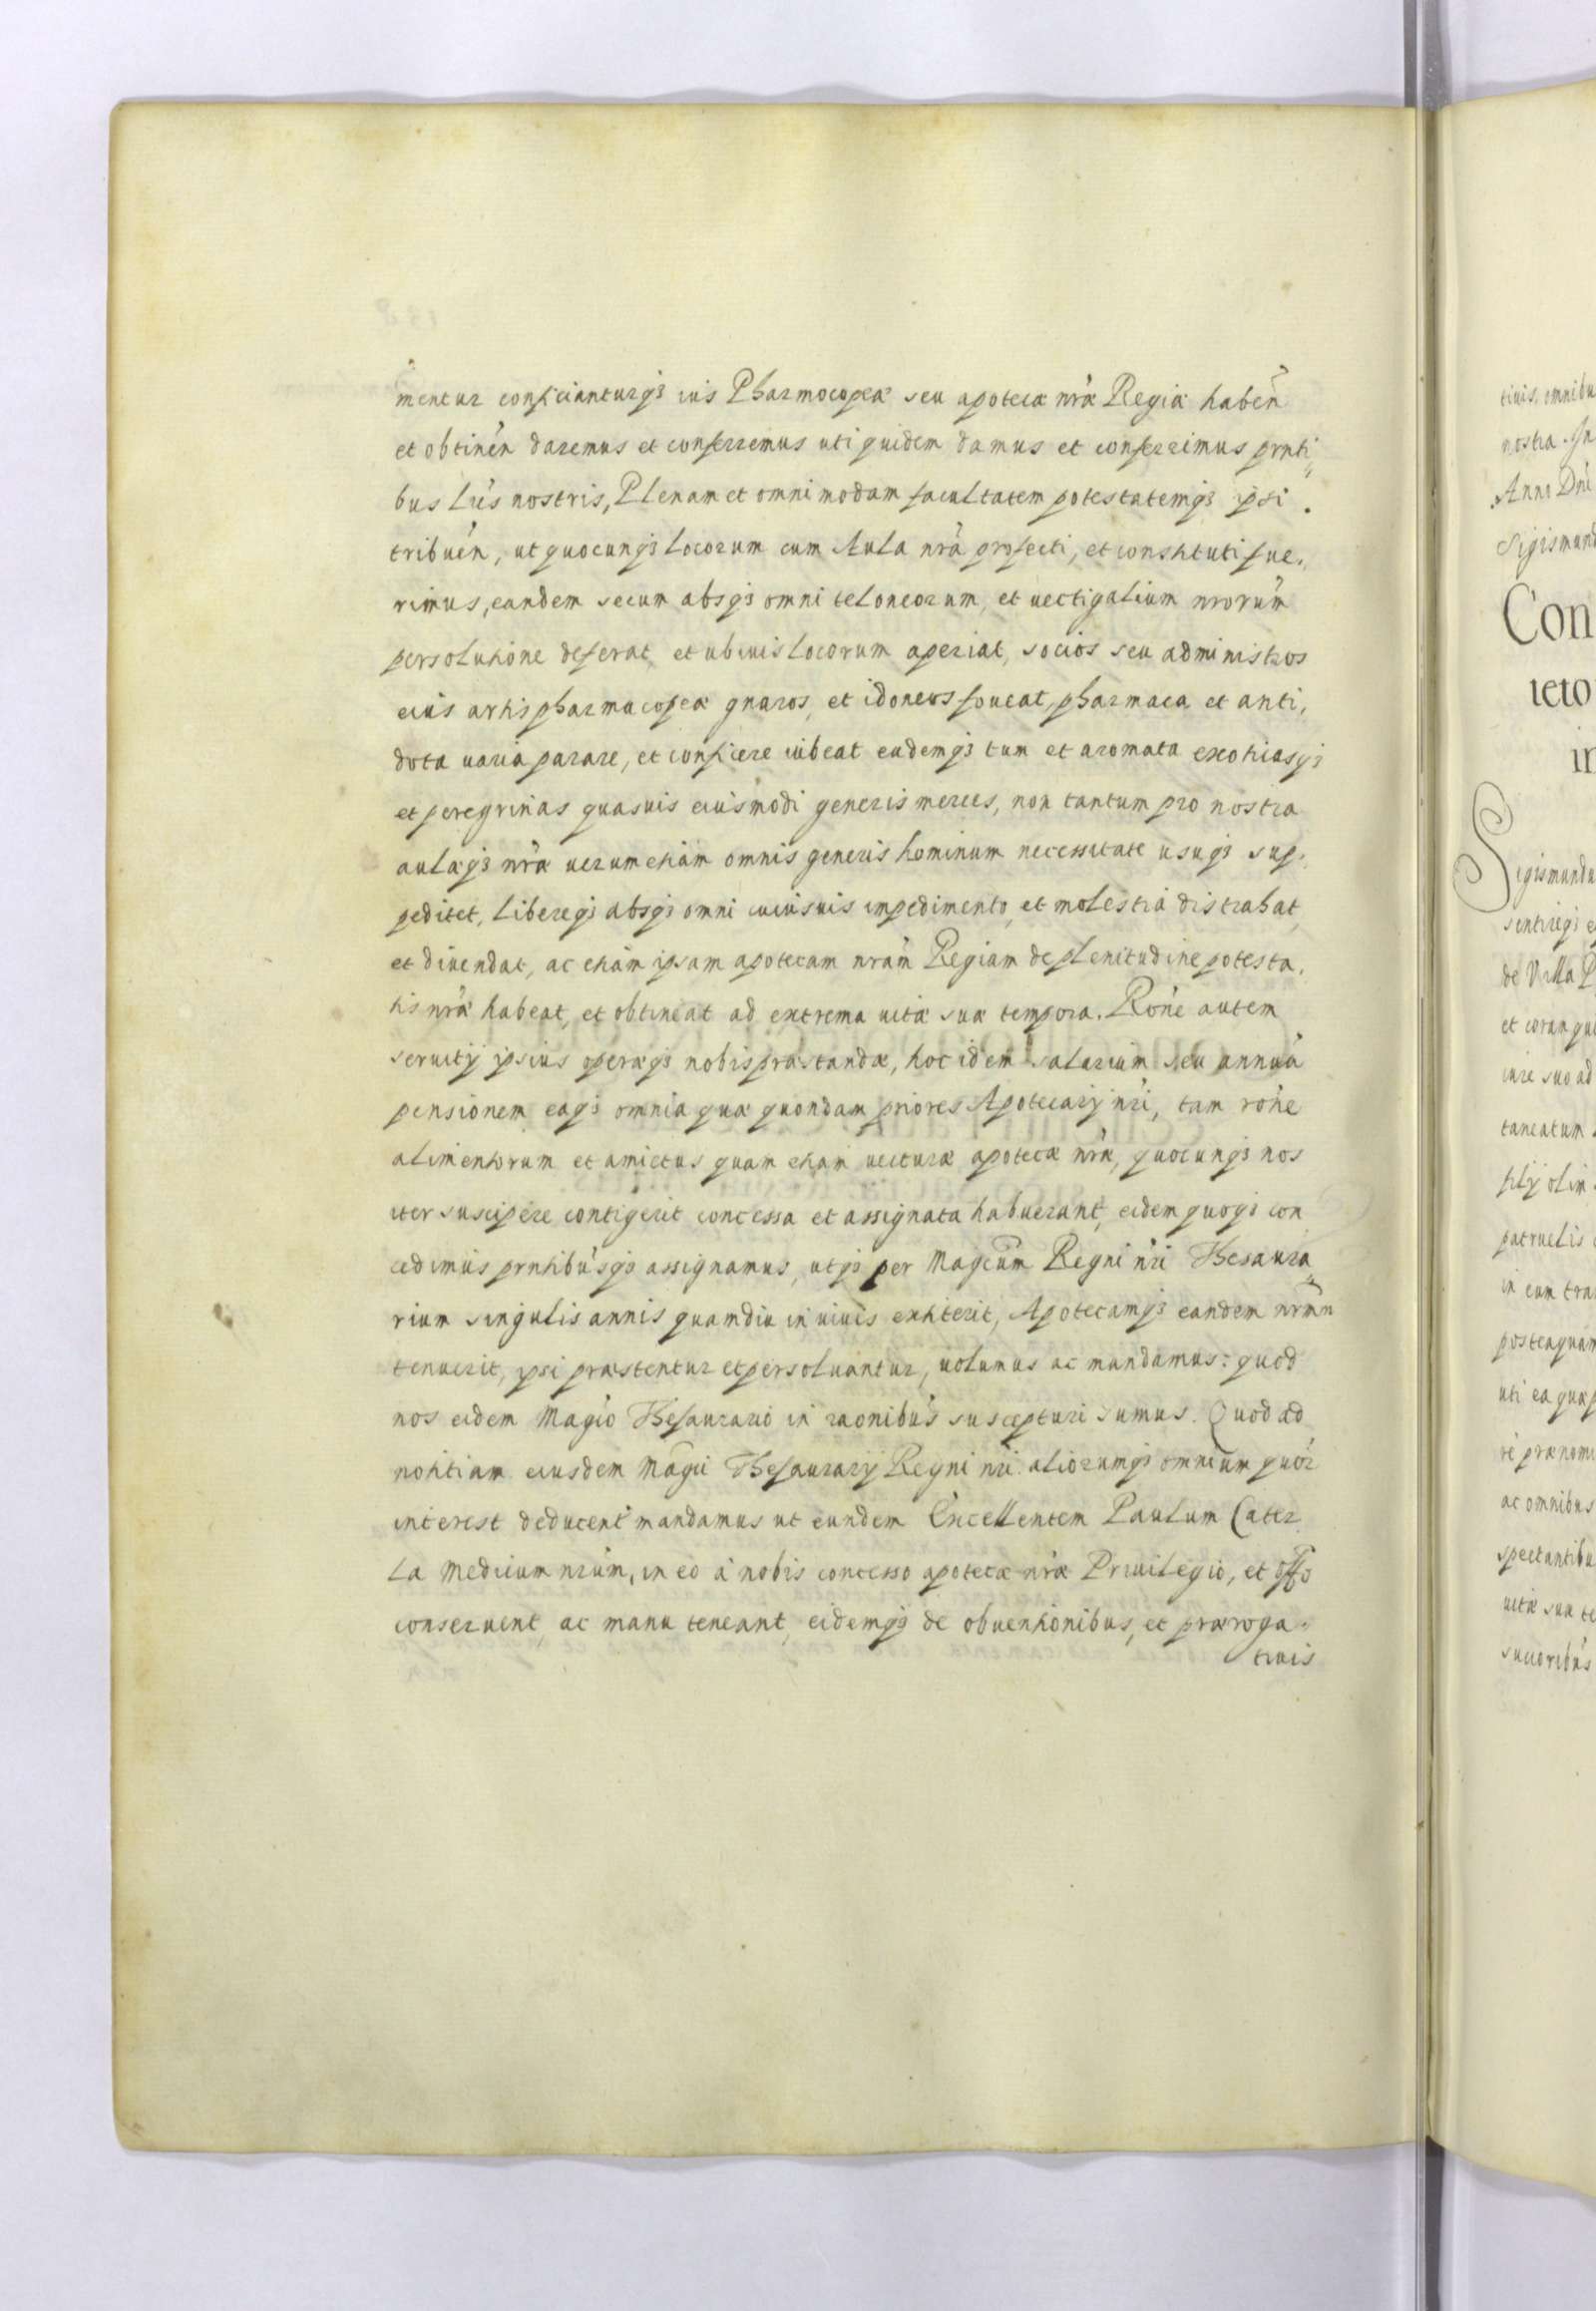 mentur conficianturq3 ius Pharmocopeæ seu apotecæ nr̃æ Regiæ habeñ
et obtineñ daremus et conferremus uti quidem damus et conferrimus prnti„
bus Lr̃is nostris, Plenam et omnimodam facultatem potestatemq3 ipsi.
tribueñ, ut quocunq3 Locorum cum Aula nr̃a profecti, et constituti fue,
rimus, eandem secum absq3 omni teloneorum, et uectigalium nrorum̃
persolutione deferat, et ubiuis Locorum aperiat, socios seu administros
eius artis pharmacopeæ gnaros, et idoneos foueat, pharmaca et anti,
dota uaria parare, et conficere iubeat eademq3 tum et aromata exoticasq3
et peregrinas quasuis eiusmodi generis merces, non tantum pro nostra
aulæq3 nr̃æ uerumetiam omnis generis hominum necessitate usuq3 sup,
peditet, Libereq3 absq3 omni cuiusuis impedimento, et molestia distrahat,
et diuendat, ac etiam ipsam apotecam nram̃ Regiam de plenitudine potesta,
tis nr̃æ habeat, et obtineat ad extrema uitæ suæ tempora. Rone autem
seruitij ipsius operæq3 nobis præstandæ, hoc idem salarium seu annuã
pensionem eaq3 omnia quæ quondam priores Apotecarij nr̃i, tam rone
alimentorum et amictus quam etiam uecturæ apotecæ nr̃æ, quocunq3 nos
iter suscipere contigerit concessa et assignata habuerant, eidem quoq3 con
cedimus prntibusq3 assignamus, utq3 per Magcum̃ Regni nr̃i Thesaura„
rium singulis annis quamdiu in uiuis extiterit, Apotecamq3 eandem nrm̃n
tenuerit, ipsi præstentur et persoluantur, uolumus ac mandamus: quod
nos eidem Magco Thesaurario in raonibus suscepturi sumus. Quod ad
notitiam eiusdem Magci Thesaurarij Regni nr̃i aliorumq3 omnium quor̃
interest deducent̃ mandamus ut eundem Excellentem Paulum Cater
La Medicum nrum̃, in eo à nobis concesso apotecæ nr̃æ Priuilegio, et offo
conseruent, ac manu teneant, eidemq3 de obuentionibus, et præroga,
tiuis
tiuis, omnibu
nostra. In
Anno Dñi
Sigismund
Con
ieto
in
Sigismundu
sentireq3 e
de Villa P
et coram qui
iure suo ad
taneatum
filij olim
patruelis
in eum tra
posteaquam
uti ea quæ p
rè prænomi
ac omnibus
spectantibu
uitæ suæ te
succoribus